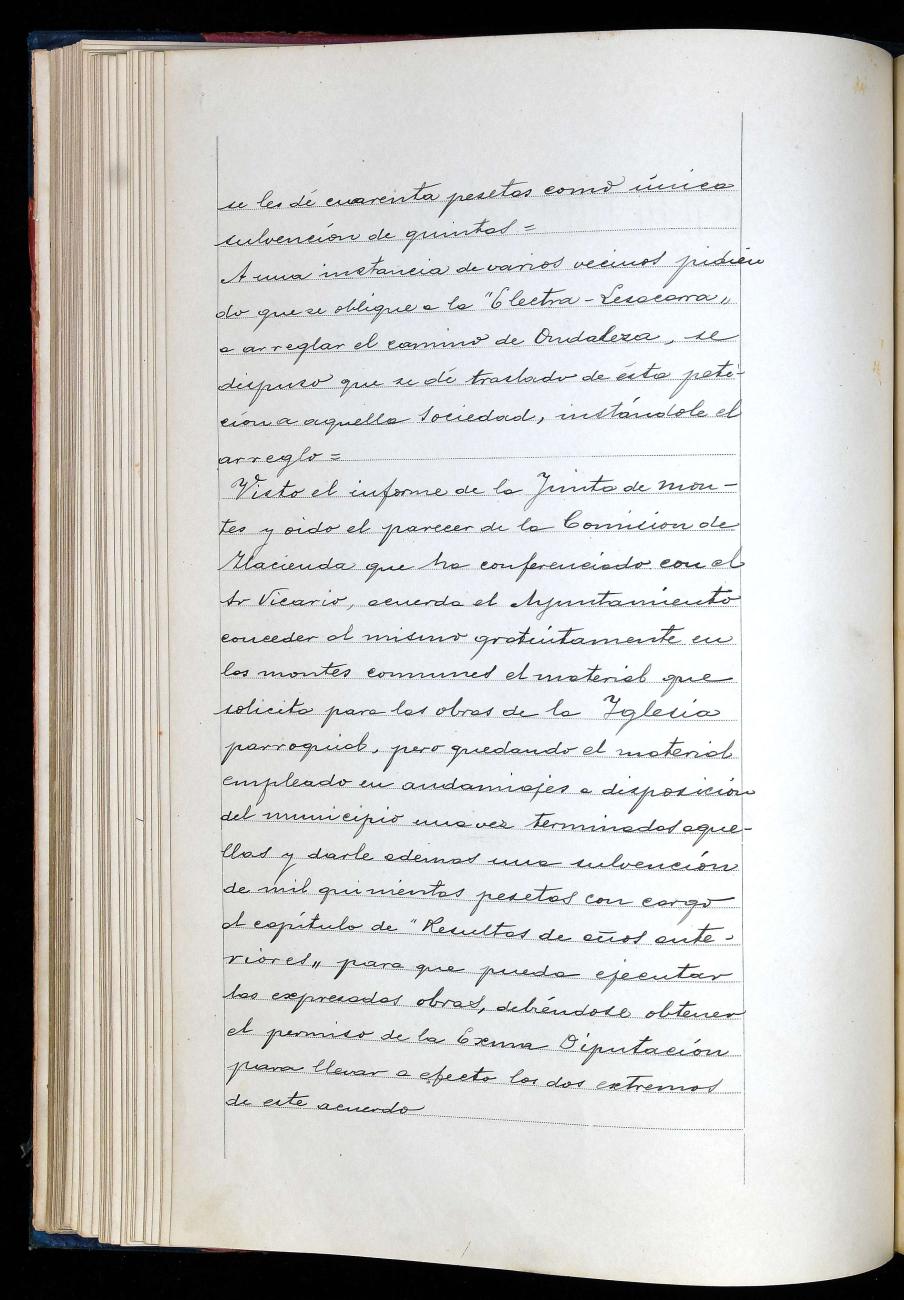 se les dé cuarenta pesetas como única
sulvención de quintas =
A una instancia de varios vecinos pidien
do que se oblique a la "Electra-Lesacarra„
a arreglar el camino de Ondaleza, se
dispuso que se dé traslado de ésta peti-
ción a aquella Sociedad, instándole el
arreglo =
Visto el informe de la Junta de Mon-
tes y oido el parecer de la Comision de
Hacienda que ha conferenciado con el
Sr Vicario, acuerda el Ayuntamiento
conceder al mismo gratuitamente en
los montes comunes el material que
solicita para las obras de la Iglesia
parroquial, pero quedando el material
empleado en andamiajes a disposición
del municipio una vez terminadas aque-
llas y darle ademas una sulvención
de mil quinientas pesetas con cargo
al capítulo de "Resultas de años ante-
riores„ para que pueda ejecutar
las expresadas obras, debiéndose obtener
el permiso de la Exma Diputación
para llevar a efecto los dos extremos
de este acuerdo